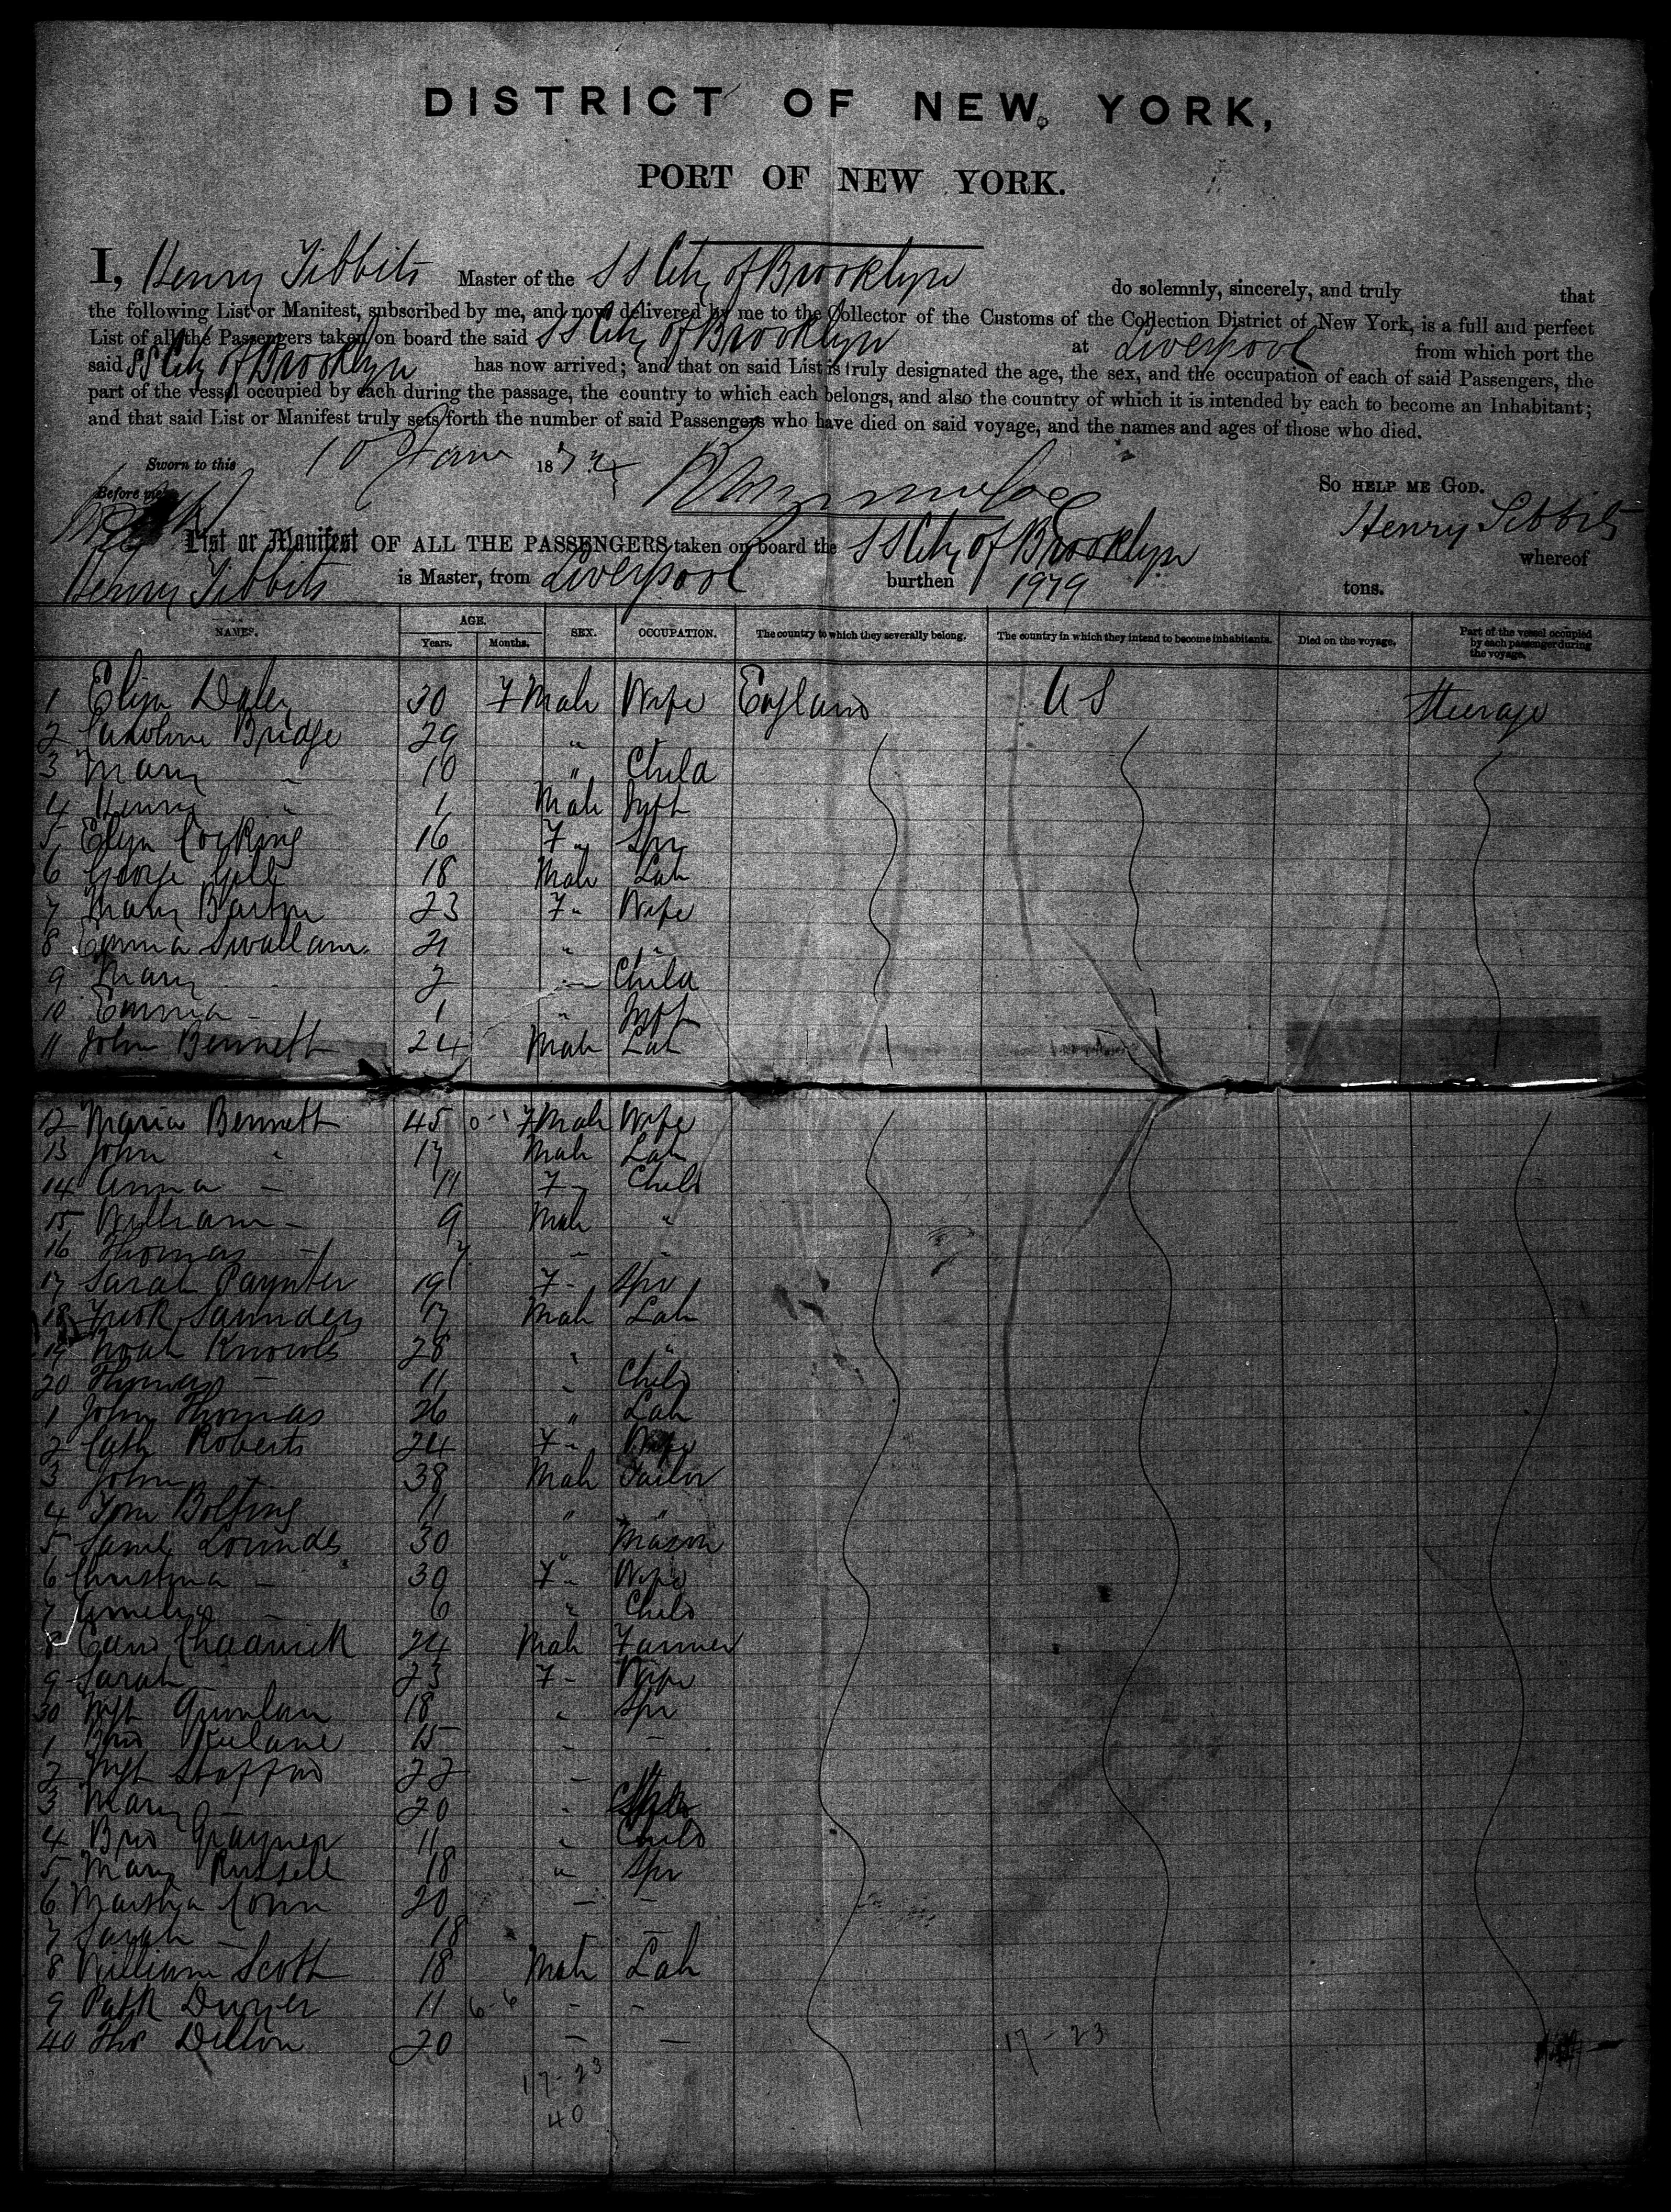 DISTRICT OF NEW YORK,
PORT OF NEW YORK.
I, Henry Tibbits Master of the SS City of Brooklyn do solemnly, sincerely, and truly that
the following List or Manifest, subscribed by me, and now delivered by me to the Collector of the Customs of the Collection District of New York, is a full and perfect
List of all the Passengers taken on board the said SS City of Brooklyn at Liverpool from which port the
said SS City of Brooklyn has now arrived; and that on said List is truly designated the age, the sex, and the occupation of each of said Passengers, the
part of the vessel occupied by each during the passage, the country to which each belongs, and also the country of which it is intended by each to become an Inhabitant;
and that said List or Manifest truly sets forth the number of said Passengers who have died on said voyage, and the names and ages of those who died.
Sworn to this 10 Jan 187
Before me So HELP ME GOD.
Henry Tibbits
List or Manifest OF ALL THE PASSENGERS taken on board the SS City of Brooklyn whereof
Henry Tibbits is Master, from Liverpool burthen 1979 tons.
NAMES. AGE. Years. Months. SEX. OCCUPATION. The country to which they severally belong. The country in which they intend to become inhabitants. Died on the voyage. Part of the vessel occupied by each passenger during the voyage.
1 Eliza Daley 30 FMale Wife England US Steerage
2 Caroline Bridge 29 "
3 Mary " 10 " Child
4 Henry " 1 Male Inft
5 Eliza Cocking 16 F " Spr
6 George Gill 18 Male Lab
7 Mary Barton 23 F " Wife
8 Emma Swallam 21 " "
9 Mary 2 " Child
10 Emma - 1 " Inft
11 John Bennett 24 Male Lab
12 Maria Bennett 45 0-1 FMale Wife
13 John " 17 Male Lab
14 Anna - 11 F - Child
15 William - 9 Male "
16 Thomas - 7 " "
17 Sarah Paynter 19 F - Spr
18 Fredk Saunders 17 Male Lab
19 Noah Knowles 28 " "
20 Thomas - 11 " Child
1 John Thomas 26 " Lab
2 Cath Roberts 24 F " Wife
3 John 38 Male Tailor
4 Tom Bolting 11 " "
5 Saml Lounds 30 " Mason
6 Christina - 39 F - Wife
7 Amelia - 6 " Child
8 Edwd Chadwick 24 Male Farmer
9 Sarah - 23 F - Wife
30 Quinlan 18 " Spr
1 Brid 15 " -
2 Stafford 22 -
3 Mary - 20 "
4 Brid 11 " Child
5 Mary Russell 18 " Spr
6 Martha Conn 20 - -
7 Sarah - 18 -
8 William Scott 18 Male Lab
9 Patk Dwyer 11 6-6 - -
40 Thos Dillon 20 - -
17-23
17-23
40